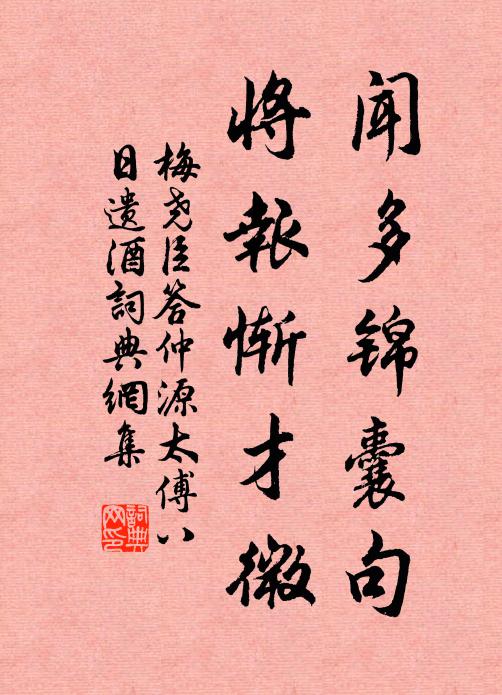 闻多锦囊句
将報惭才微
梅尧臣答仲源太傅八
日遗酒詞典網集
詞典网印